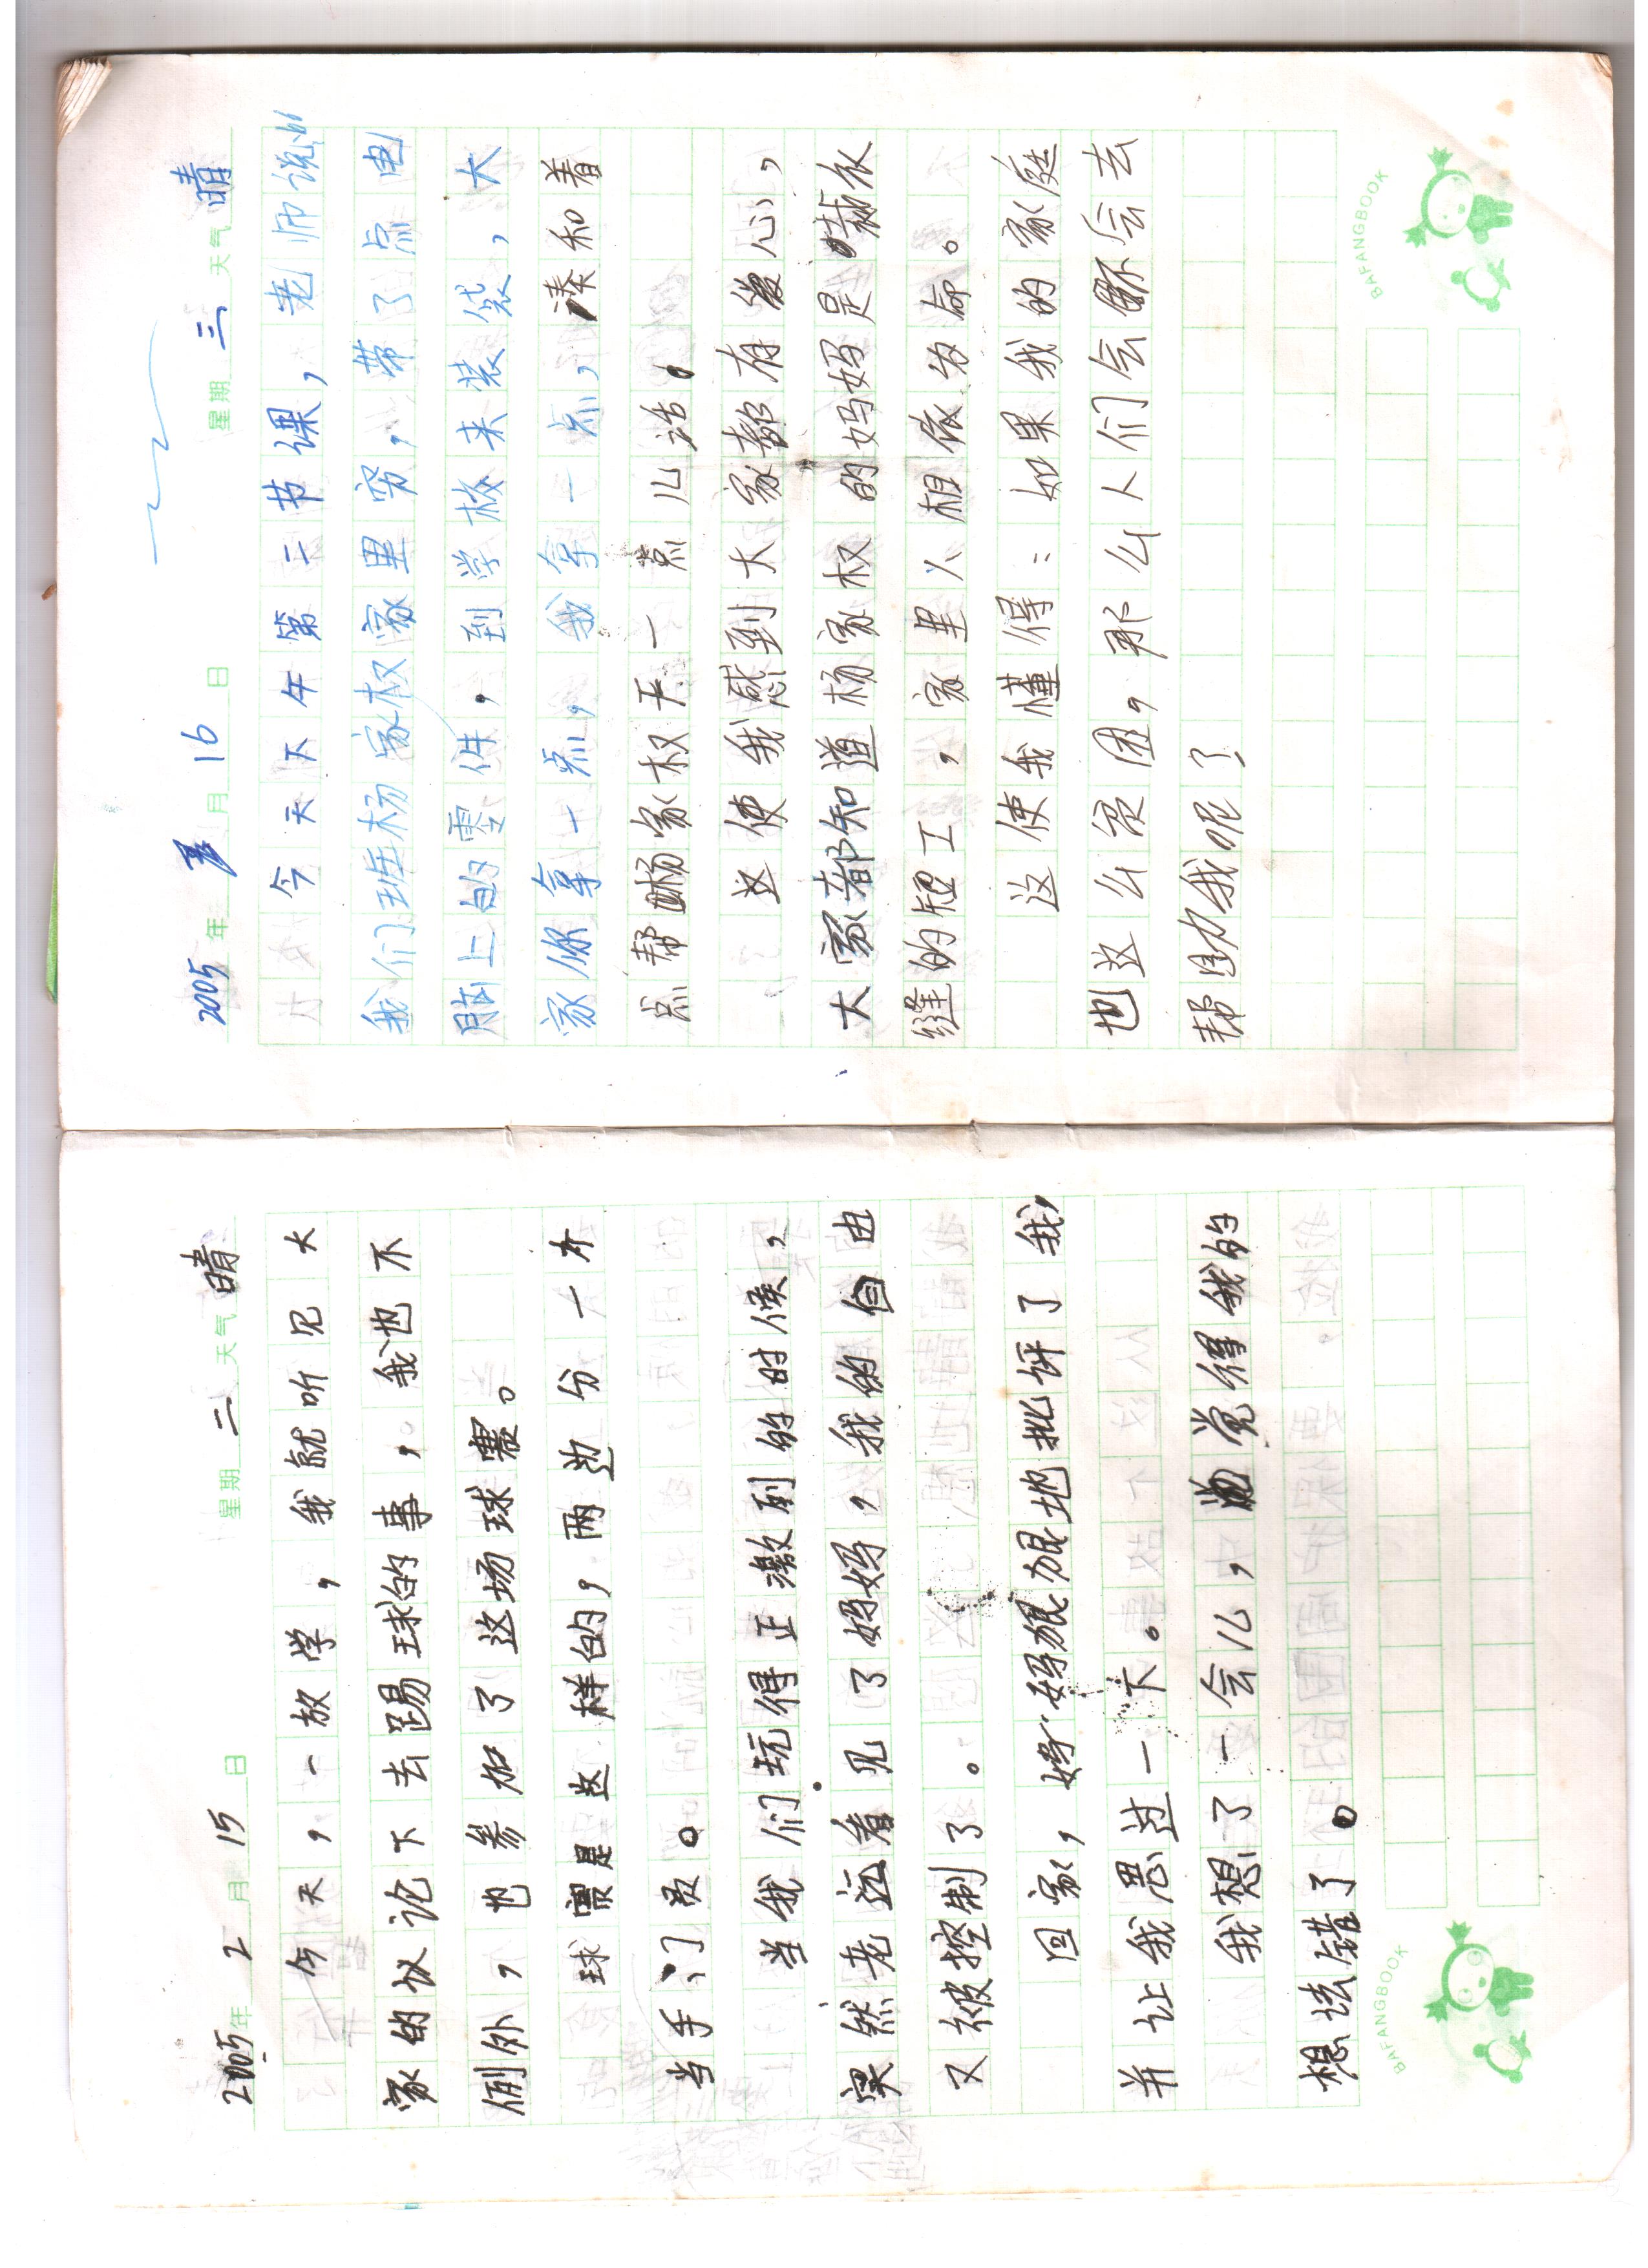 2005年 2 月 15 日 星期 二 天气 晴
今天,一放学,我就听见大
家的议论下去踢球的事,我也不
例外,也参加了这场球赛。
球是这样的,两边分一个
当手门员。
当我们玩得正激刮的时候,
突然老远看见了妈妈,我的自由
又被控制了。
回家,妈妈狠狠地批评了我,
并让我思过一下。
我想了一会儿,觉得我的
想法错了。
BAFANGBOOK
2005 年 月 16 日 星期 三 天气 晴
今天下午第二节课,老师说的
我们班杨家权家里穷,带了点电
脑上的零件,到学校来装袋,大
家你拿一点,我拿一点,凑和着
点帮杨家权干一点儿活。
这使我感到大家都有爱心,
大家都知道杨家权的妈妈是裁衣
缝的短工,家里人相依为命。
这使我懂得:如果我的家庭
也这么贫困,那么人们会不会去
帮助我呢了
BAFANGBOOK